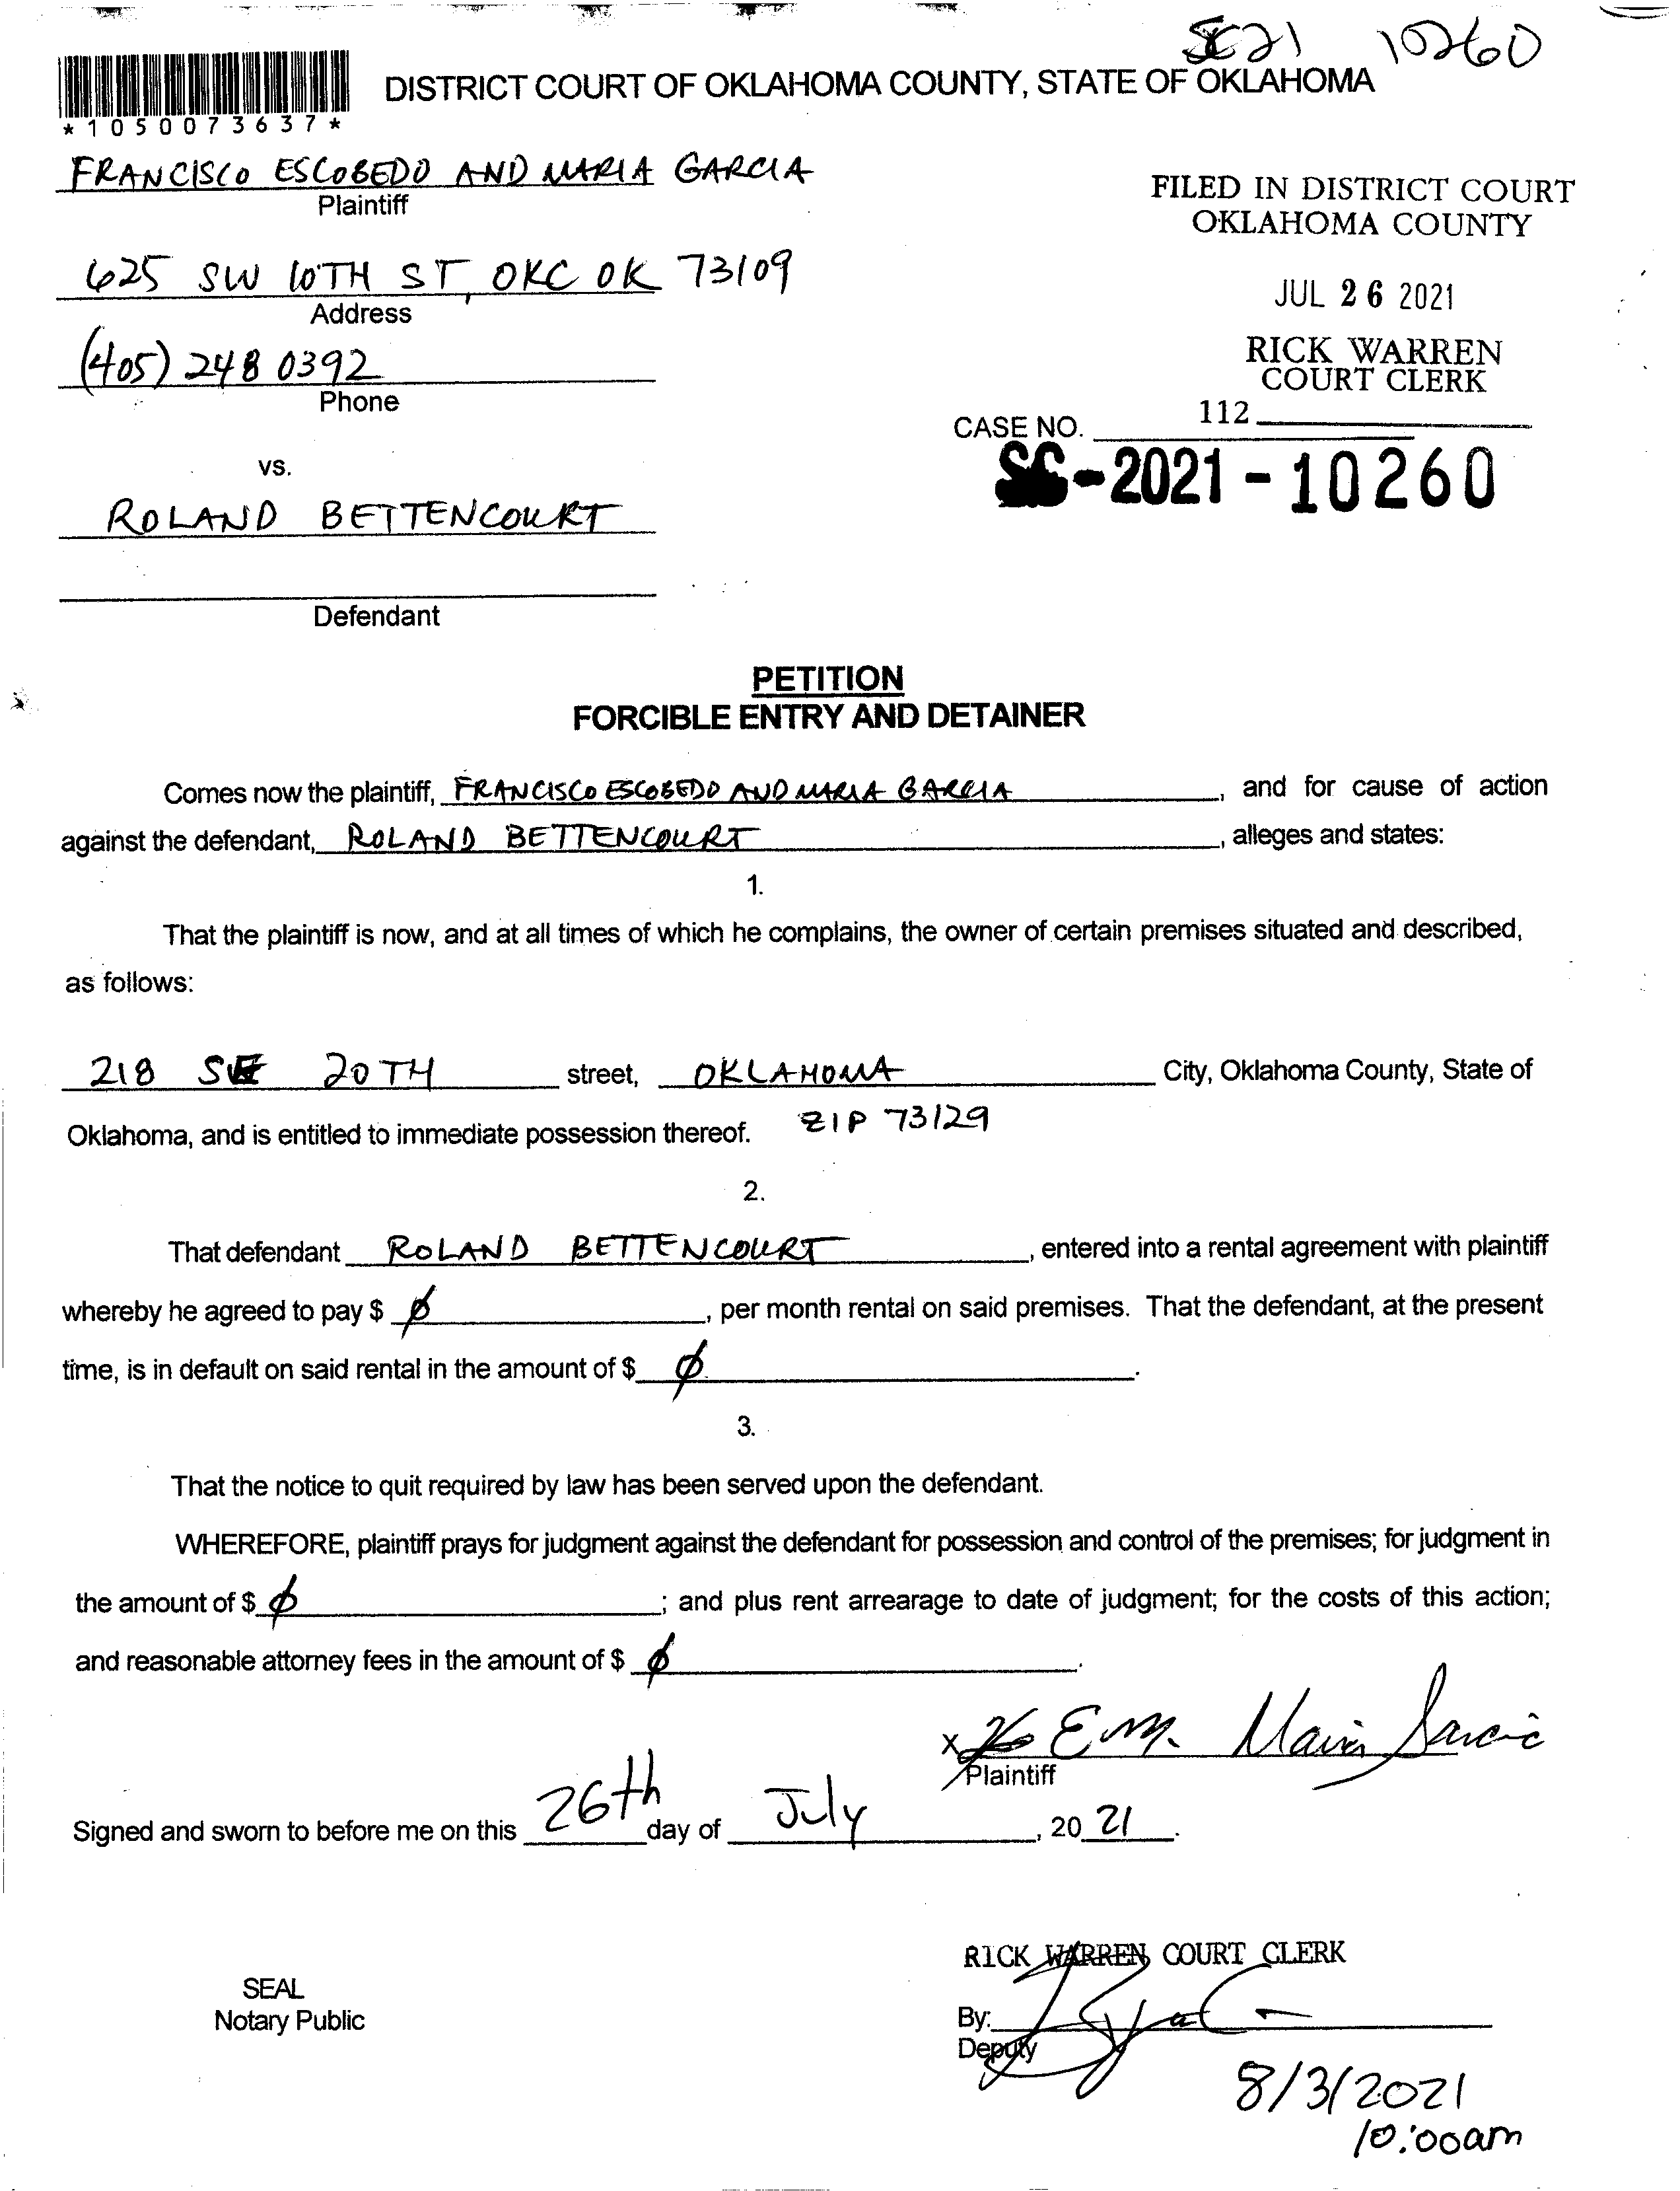 SC21 10260
DISTRICT COURT OF OKLAHOMA COUNTY, STATE OF OKLAHOMA
*1050073637*
FRANCISCO ESCOBEDO AND MARIA GARCIA
Plaintiff
FILED IN DISTRICT COURT
OKLAHOMA COUNTY
625 SW 10TH ST, OKC OK 73109
Address
JUL 26 2021
(405) 248 0392
Phone
RICK WARREN
COURT CLERK
112
CASE NO.
SC-2021-10260
vs.
ROLAND BETTENCOURT
Defendant
PETITION
FORCIBLE ENTRY AND DETAINER
Comes now the plaintiff, FRANCISCO ESCOBEDO AND MARIA GARCIA, and for cause of action
against the defendant, ROLAND BETTENCOURT, alleges and states:
1.
That the plaintiff is now, and at all times of which he complains, the owner of certain premises situated and described,
as follows:
218 SE 20TH street, OKLAHOMA City, Oklahoma County, State of
Oklahoma, and is entitled to immediate possession thereof. ZIP 73129
2.
That defendant ROLAND BETTENCOURT, entered into a rental agreement with plaintiff
whereby he agreed to pay $ Ø, per month rental on said premises. That the defendant, at the present
time, is in default on said rental in the amount of $ Ø.
3.
That the notice to quit required by law has been served upon the defendant.
WHEREFORE, plaintiff prays for judgment against the defendant for possession and control of the premises; for judgment in
the amount of $ Ø; and plus rent arrearage to date of judgment; for the costs of this action;
and reasonable attorney fees in the amount of $ Ø.
X E.M. Maria Garcia
Plaintiff
Signed and sworn to before me on this 26th day of July, 2021.
RICK WARREN COURT CLERK
SEAL
Notary Public
By:
Deputy
8/3/2021
10:00am